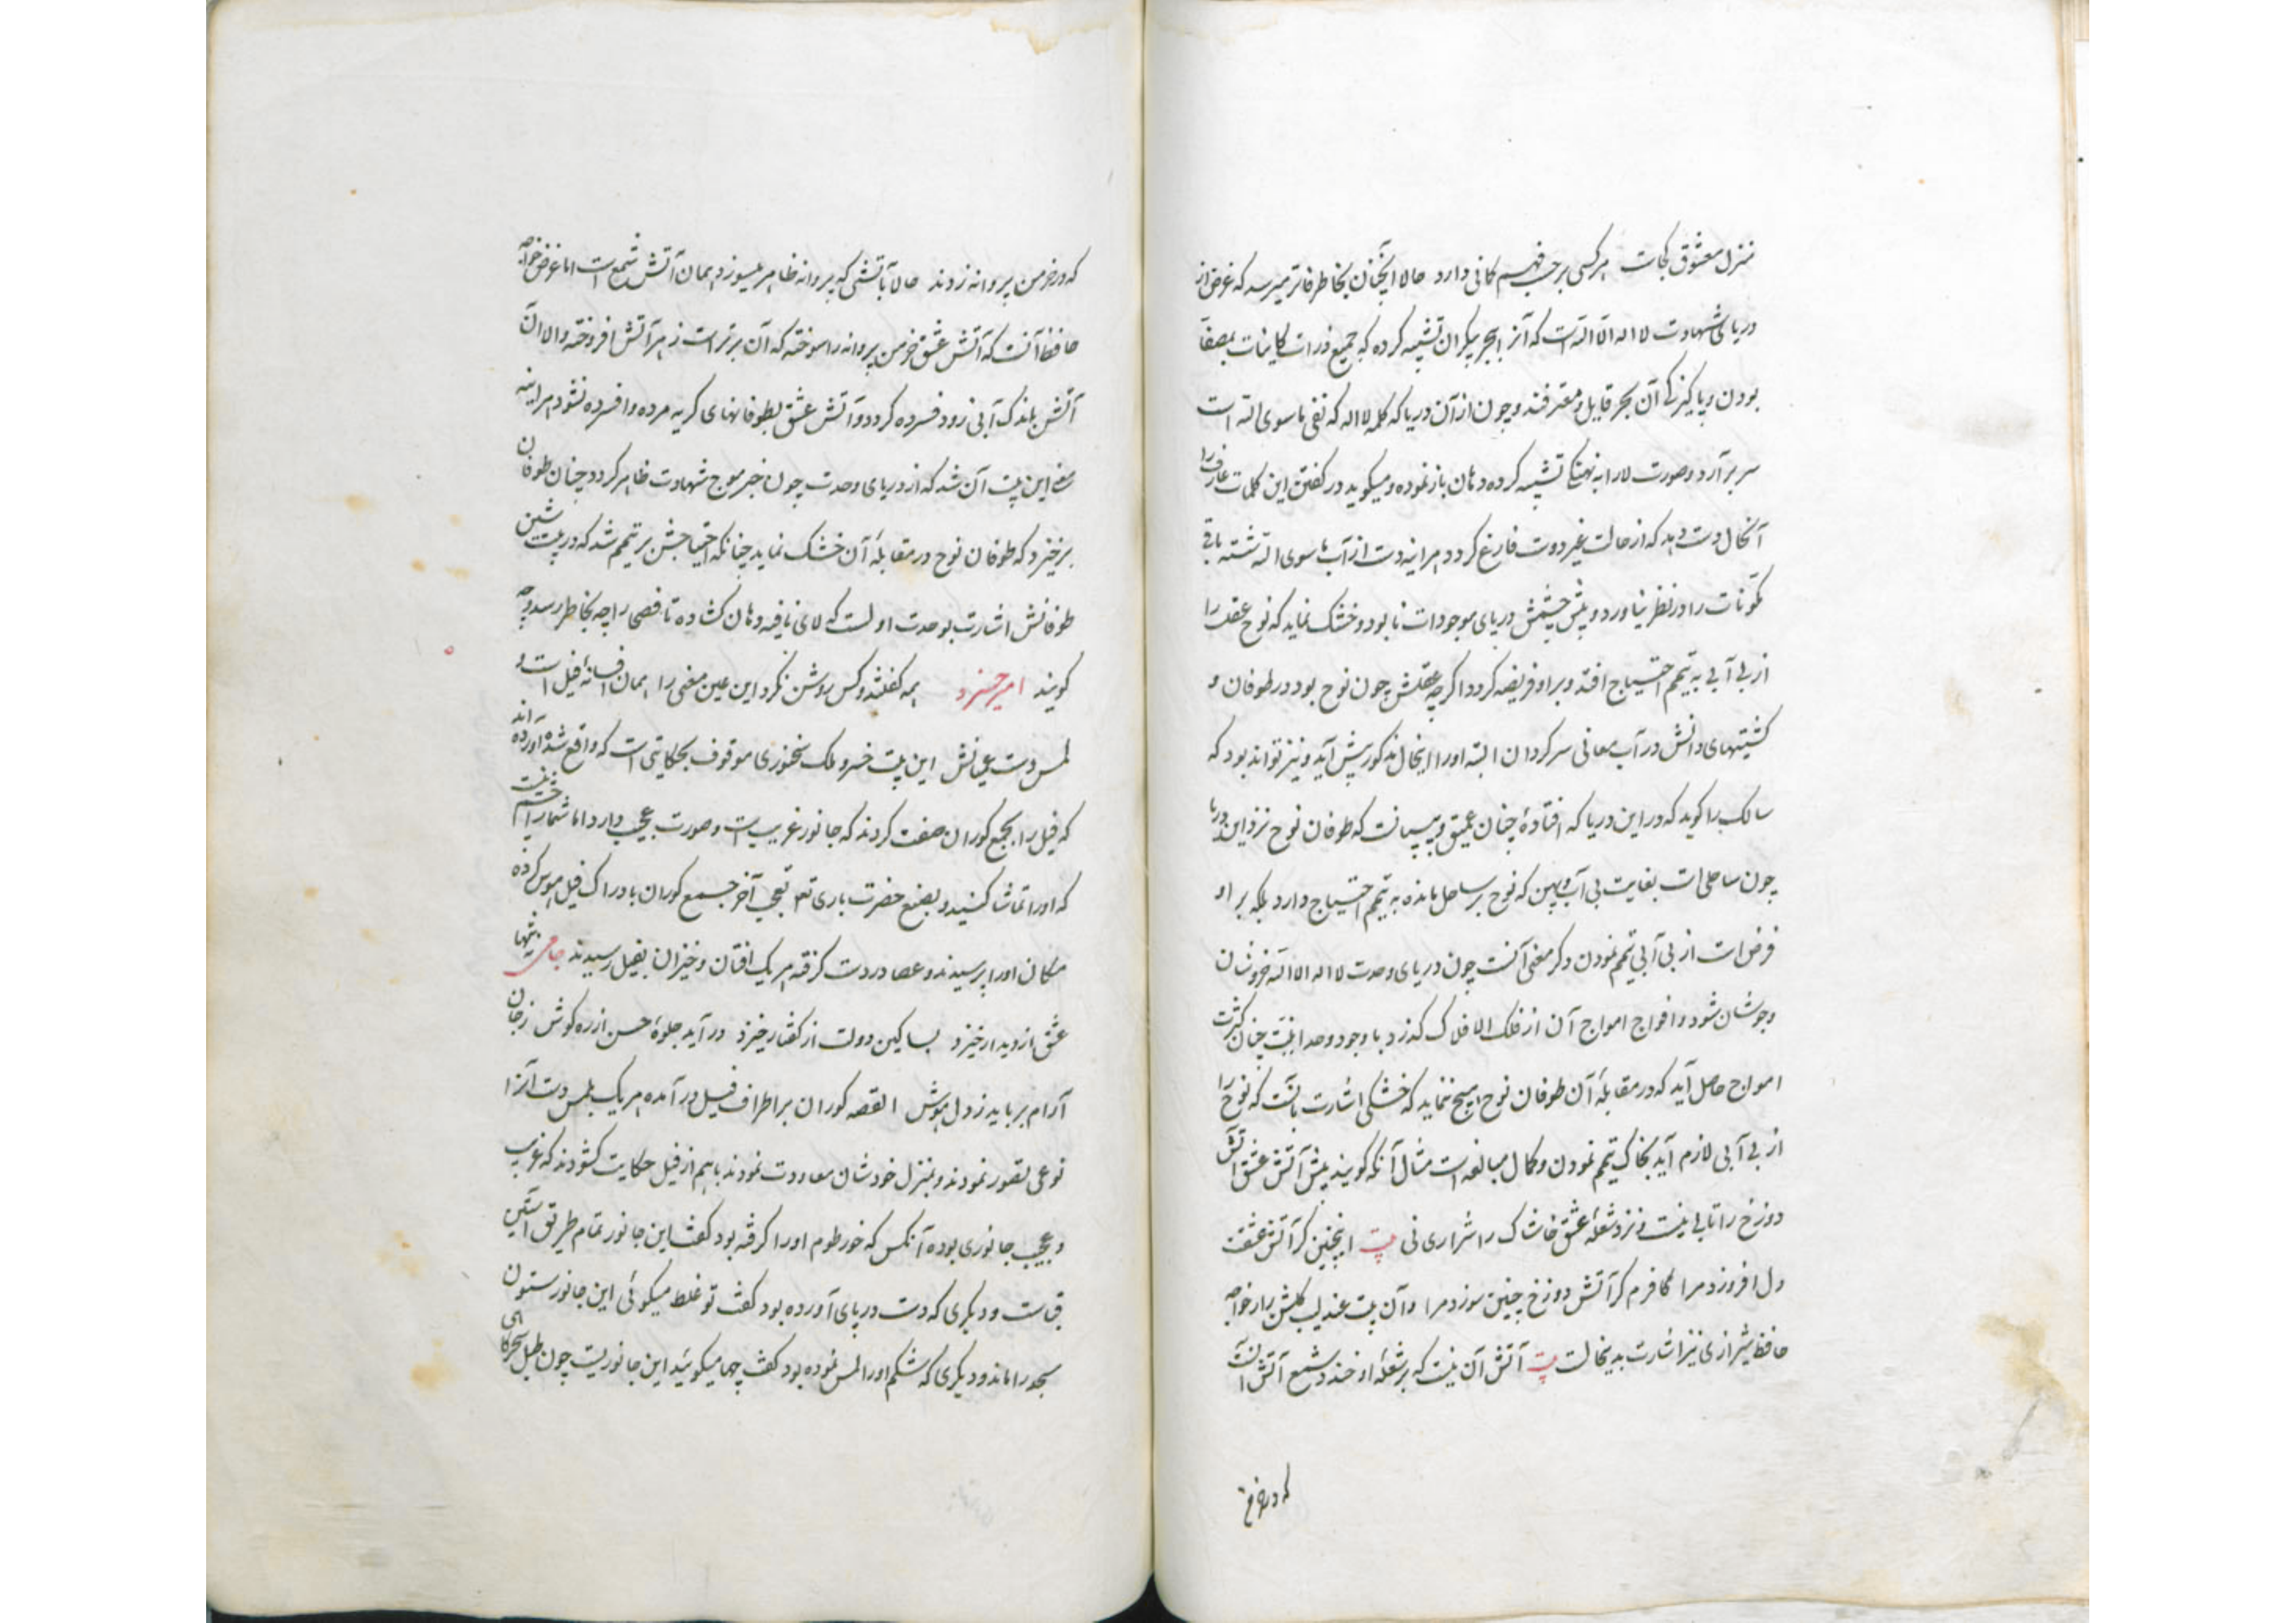 منزل معشوق کجاست هر کسی برحسب فهم کمانی دارد حالا اینچنان بخاطر فاتر میرسد که غرض از
دریای شهادت لا اله الا الله است که آنرا ببحر بیکران تشبیه کرده که جمیع ذرات کاینات بصفا
بودن و پاکیزکی آن بحر قایل و معترفند و چون از آن دریا که کلمه لا اله که نفی ماسوی الله است
سر برآرد و صورت لا را به نهنک تشبیه کرده دهان باز نموده و میکوید در کفتن این کلمات عارف را
آنحال دست دهد که از حالت غیر دوست فارغ کردد هراینه دست از آب ماسوی الله شسته باقی
مکونات را در نظر نیاورد و پیش چشمش دریای موجودات نابود و خشک نماید که نوح عقل را
از بی آبی به تیمم احتیاج افتد و بر او فریضه کردد اکرچه عقلش چون نوح بود در طوفان و
کشتیهای دانش در آب معانی سرکردان البته او را اینحال مذکور پیش آید و نیز تواند بود که
سالک را کوید که در این دریا که افتادهٔ چنان عمیق و بی‌پایانست که طوفان نوح نزد این دریا
چون ساحلی است بغایت بی آب و پهن که نوح بر ساحل مانده به تیمم احتیاج دارد بلکه بر او
فرض است از بی آبی تیمم نمودن و دکر معنی آنست چون دریای وحدت لا اله الا الله خروشان
و جوشان شود و افواج امواج آن از فلک الافلاک کذرد با وجود وحدانیت چنان کثرت
امواج حاصل آید که در مقابلهٔ آن طوفان نوح هیچ ننماید که خشکی اشارت بآنست که نوح را
از بی آبی لازم آید بخاک تیمم نمودن و کمال مبالغه است مثال آنکه کویند پیش آتش عشق آتش
دوزخ را تابی نیست و نزد شعلهٔ عشق خاشاک را شراری نی بیت اینچنین کر آتش عشقت
دل افروزد مرا کافرم کر آتش دوزخ چنین سوزد مرا و آن بیت عندلیب کلشن راز خواجه
حافظ شیرازی نیز اشارت بدینحالت بیت آتش آن نیست که بر شعلهٔ او خندد شمع آتش آنست
که در خرمن
که در خرمن پروانه زدند حالا آتشی که پروانه ظاهر میسوزد همان آتش شمع است اما غرض خواجه
حافظ آنست که آتش عشق خرمن پروانه را سوخته که آن برتر است ز هر آتش افروخته والا آن
آتش باندک آبی زود فسرده کردد و آتش عشق بطوفانهای کریه مرده و افسرده نشود هراینه
معنی این بیت آن شد که از دریای وحدت چون خبر موج شهادت ظاهر کردد چنان طوفان
برخیزد که طوفان نوح در مقابلهٔ آن خشک نماید چنانکه احتیاجش بر تیمم شد که در بیت شین
طوفانش اشارت بوحدت اولست که لای نافیه دهان کشاده تا قصی را چه بخاطر رسد و چه
کویند امیر خسرو همه کفتند و کس روشن نکرد این عین معنی را همان افسانهٔ فیل است و
لمس دست عیانش این بیت خسرو ملک سخنوری موقوف بحکایتی است که واقع شده آورده اند
که فیل را بجمع کوران صفت کردند که جانور غریبست و صورت عجیب دارد اما شما را چشم نیست
که او را تماشا کنید و بصنع حضرت باری تع تعجب آخر جمیع کوران بادراک فیل هوس کرده
مکان او را پرسیدند و عصا در دست کرفته هر یک افتان و خیزان بفیل رسیدند جامی نه تنها
عشق از دیدار خیزد بسا کین دولت از کفتار خیزد در آید جلوهٔ حسن از ره کوش ز جان
آرام برباید ز دل هوش القصه کوران بر اطراف فیل درآمده هر یک بلمس دست آنرا
نوعی تصور نمودند و بمنزل خودشان معاودت نمودند باهم از فیل حکایت کشودند که غریب
و عجیب جانوری بوده آنکس که خورطوم او را کرفته بود کفت این جانور تمام طریق آستین
قباست و دیکری که دست در پای آورده بود کفت تو غلط میکوئی این جانور ستون
مسجد را ماند و دیکری که شکم او را لمس نموده بود کفت چها میکوئید این جانوریست چون طبل سحرکاهی